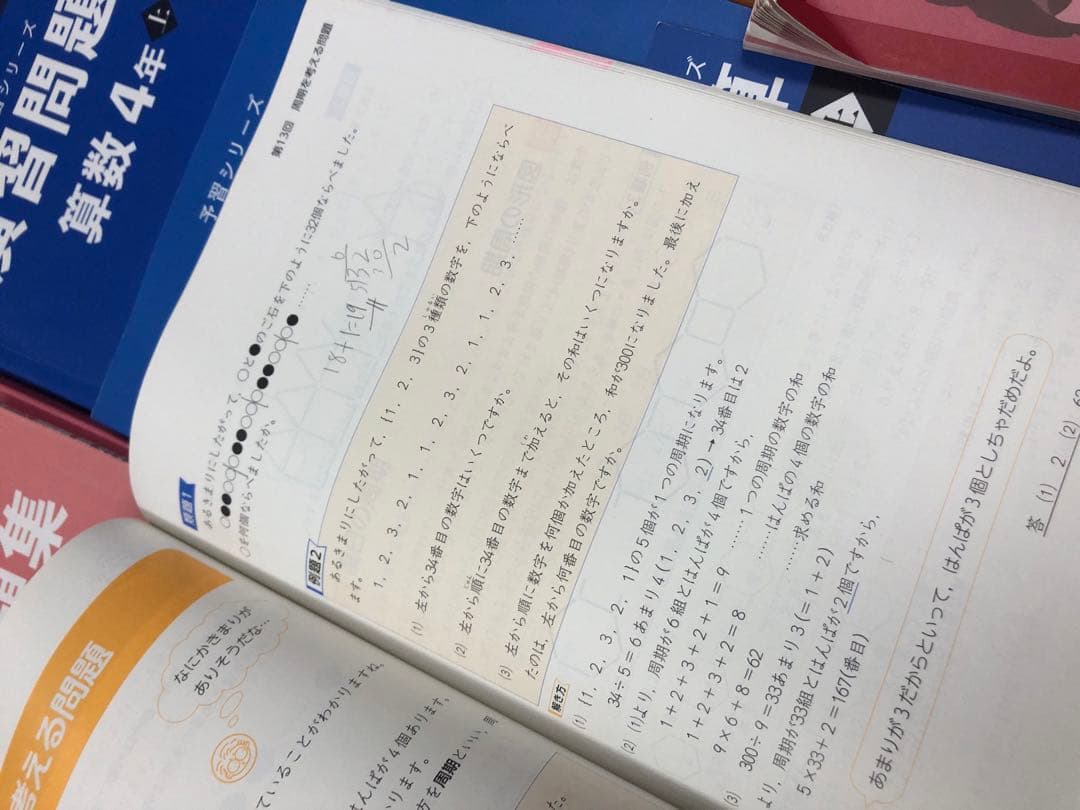 習シリーズ
演習問題
算数4年 上
予習シリーズ
ズ
算
上
集
考える問題
なにかきまりが
ありそうだな…
ていることがわかりますね。
ぱが4個あります。
ります。
方を周期といい、周
第13回 周期を考える問題
類題1
あるきまりにしたがって、○と●のご石を下のように32個ならべました。
○を何個ならべましたか。
18+1=19
5)32
6
30
2
例題2
あるきまりにしたがって、{1、2、3}の3種類の数字を、下のようにならべ
ます。
1、2、3、2、1、1、2、3、2、1、1、2、3、……
(1) 左から34番目の数字はいくつですか。
(2) 左から順に34番目の数字まで加えると、その和はいくつになりますか。
(3) 左から順に数字を何個か加えたところ、和が300になりました。最後に加え
たのは、左から何番目の数字ですか。
解き方
(1) {1、2、3、2、1}の5個が1つの周期になります。
34÷5=6あまり4(1、2、3、2)→34番目は2
(2) (1)より、周期が6組とはんぱが4個ですから、
1+2+3+2+1=9 ……1つの周期の数字の和
1+2+3+2=8 ……はんぱの4個の数字の和
9×6+8=62 ……求める和
(3) 300÷9=33あまり3(=1+2)
より、周期が33組とはんぱが2個ですから、
5×33+2=167(番目)
あまりが3だからといって、はんぱが3個としちゃだめだよ。
答 (1) 2 (2)